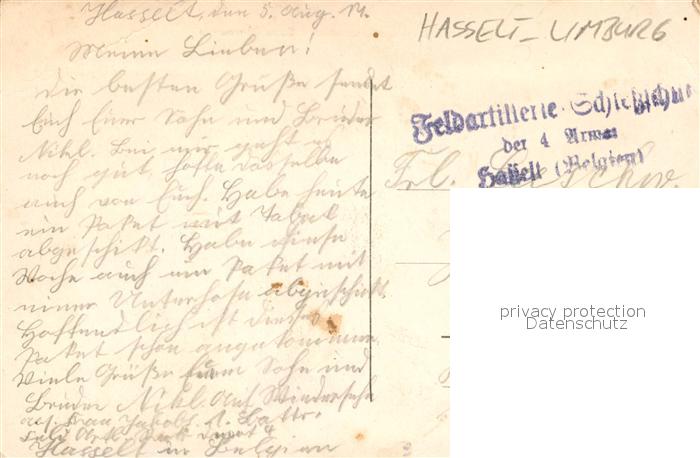 Hasselt, den 5. Aug. 17.
HASSELT - LIMBURG
Meine Lieben!
Die besten Grüße sendet
Euch Euer Sohn und Bruder
Nikl. Bei mir geht es
noch gut, hoffe dasselbe
auch von Euch. Habe heute
ein Paket mit Tabak
abgeschikt. Habe diese
Woche auch ein Paket mit
einer Unterhose abgeschickt.
Hoffentlich ist dieses
Paket schon angekommen.
Viele Grüße Euer Sohn und
Bruder Nikl. Auf Wiedersehn
Hasselt in Belgien
Feldartillerie-Schießschule
der 4 Armee
Hasselt (Belgien)
Frl.
privacy protection
Datenschutz